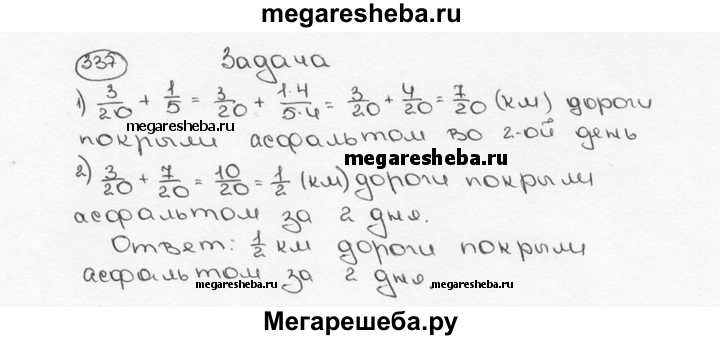 megaresheba.ru
337 Задача
1) 3/20 + 1/5 = 3/20 + 1·4/5·4 = 3/20 + 4/20 = 7/20 (км) дороги
megaresheba.ru
покрыли асфальтом во 2-ой день
megaresheba.ru
2) 3/20 + 7/20 = 10/20 = 1/2 (км) дороги покрыли
асфальтом за 2 дня.
Ответ: 1/2 км дороги покрыли
асфальтом за 2 дня.
megaresheba.ru megaresheba.ru
Мегарешеба.ру